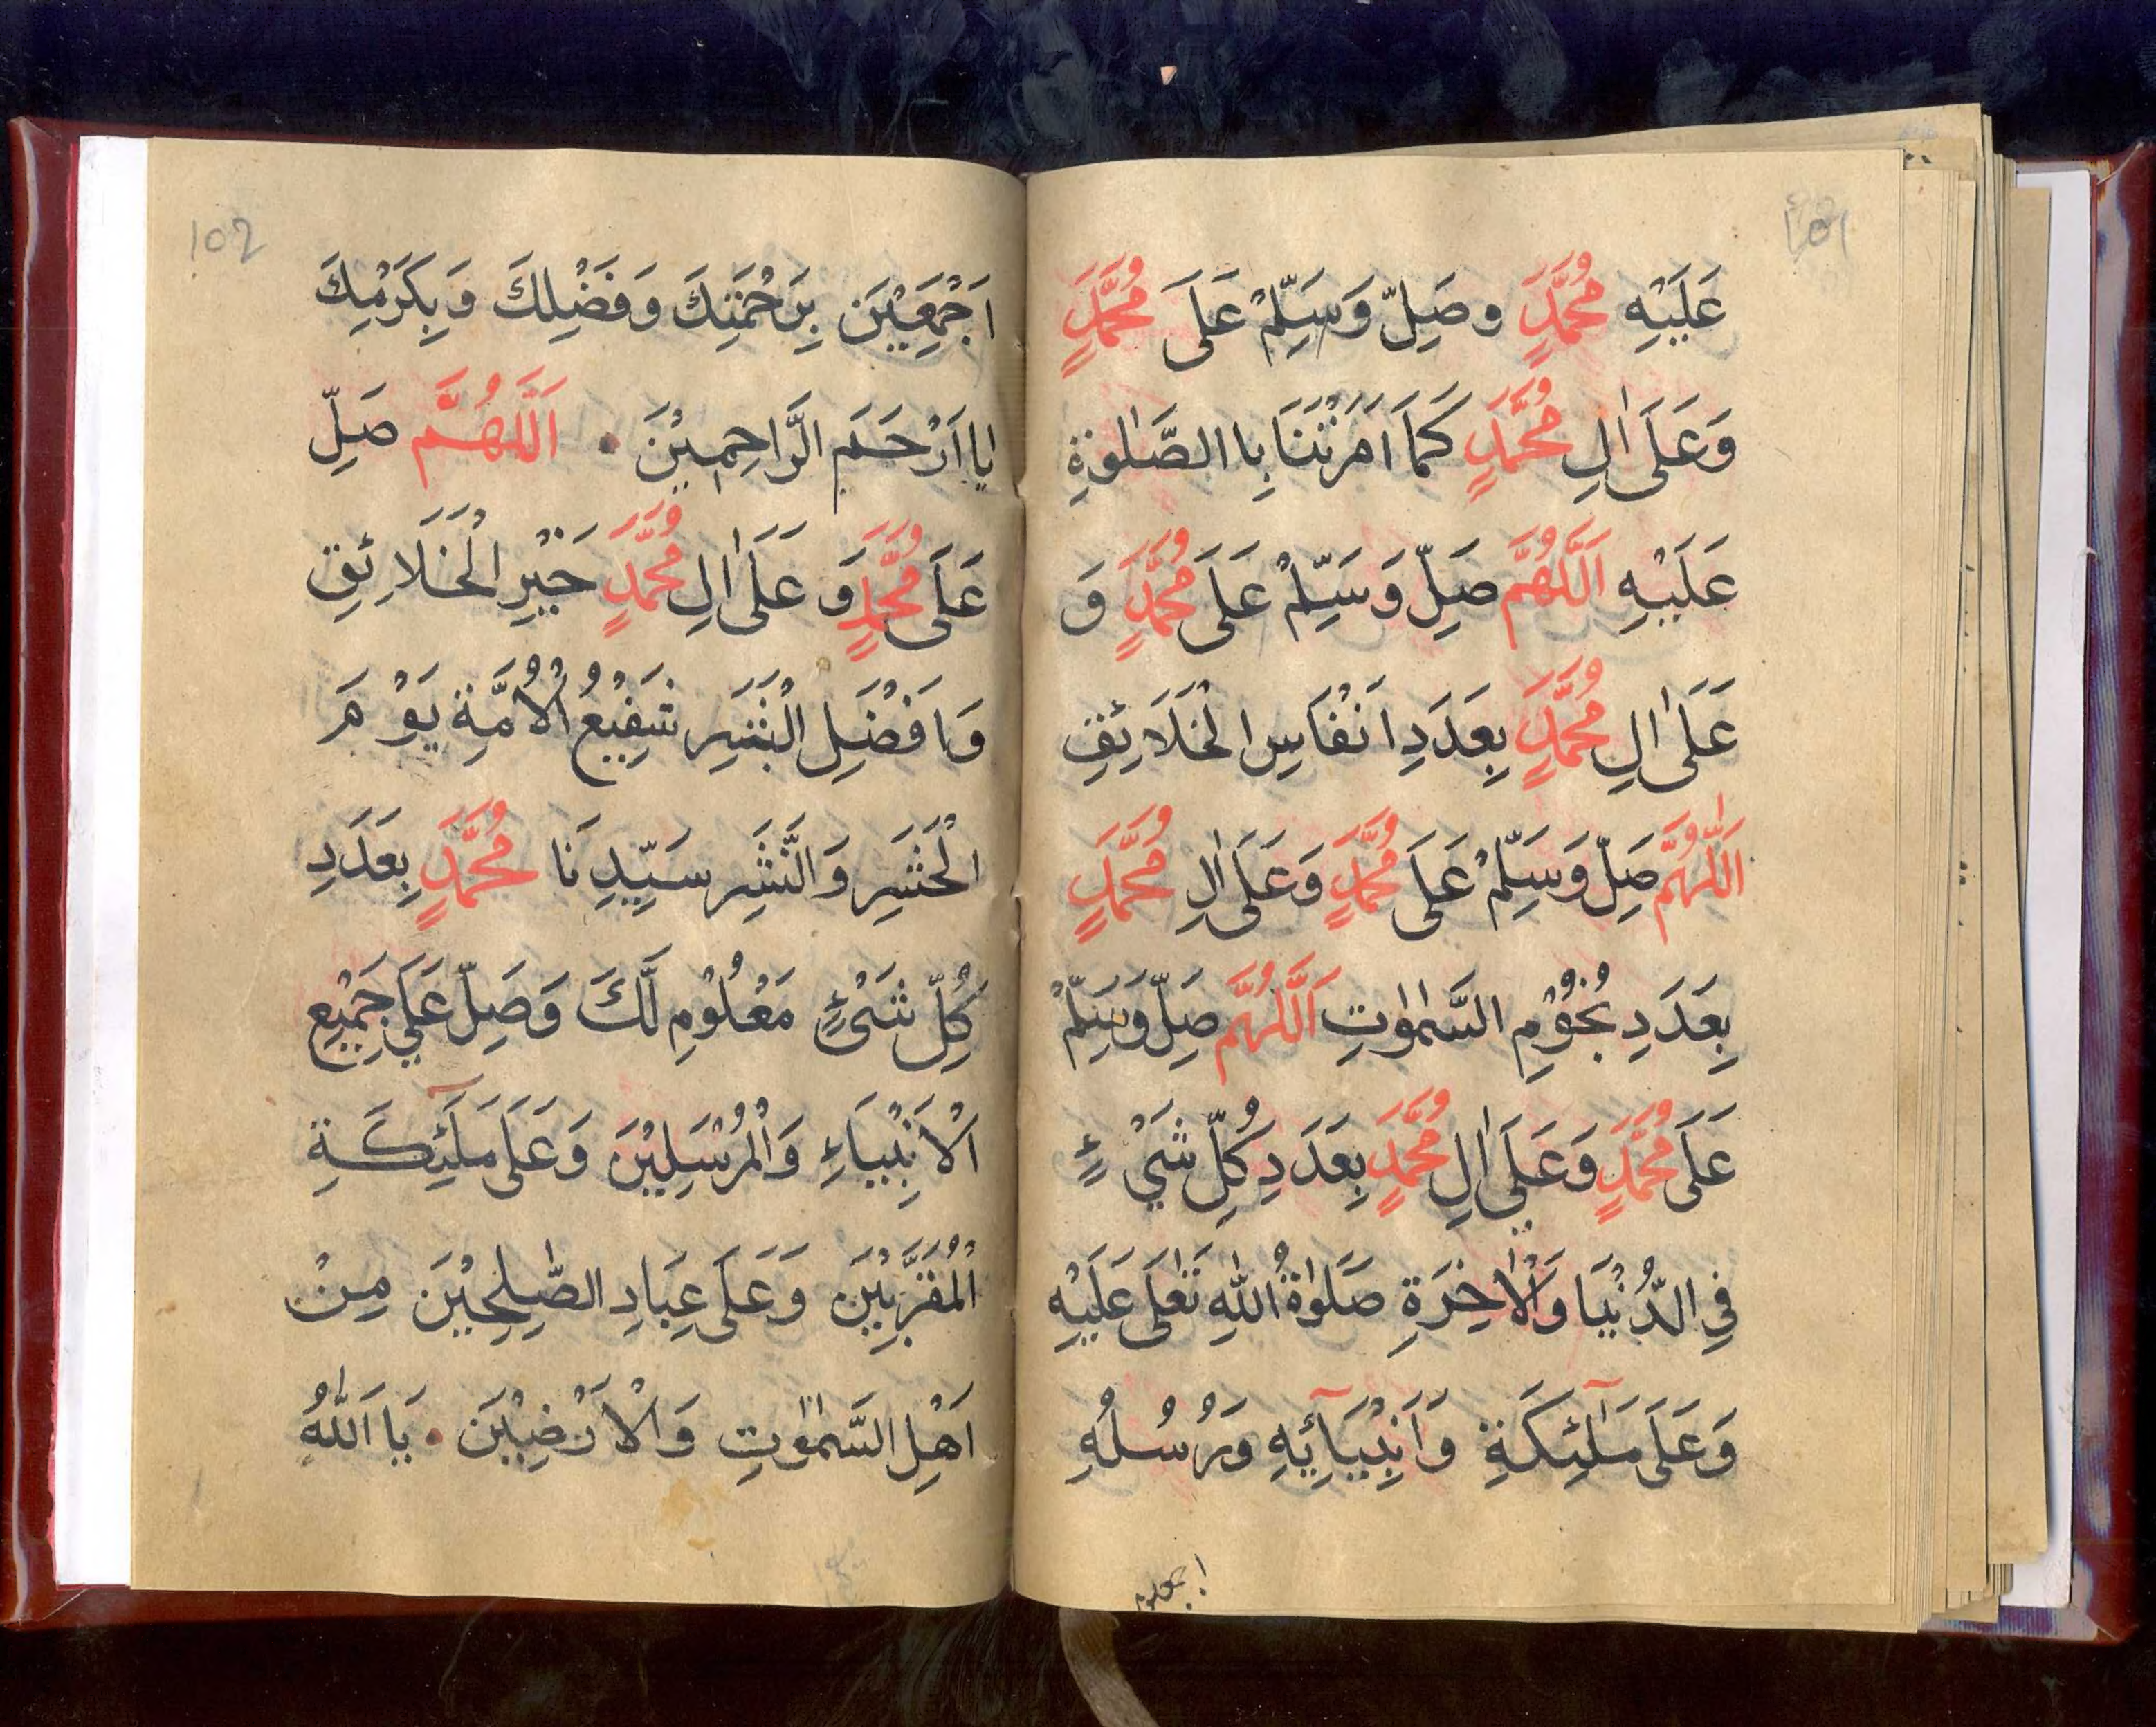 101
عَلَيْهِ مُحَمَّدٍ وصَلِّ وَسَلِّمْ عَلَى مُحَمَّدٍ
وَعَلَىٰ اٰلِ مُحَمَّدٍ كَمَا اَمَرْتَنَا بِا الصَّلٰوةِ
عَلَيْهِ اَللّٰهُمَّ صَلِّ وَسَلِّمْ عَلَى مُحَمَّدٍ وَ
عَلَىٰ اٰلِ مُحَمَّدٍ بِعَدَدِ اَنْفَاسِ الْخَلَائِقِ
اَللّٰهُمَّ صَلِّ وَسَلِّمْ عَلَى مُحَمَّدٍ وَعَلَى اٰلِ مُحَمَّدٍ
بِعَدَدِ نُجُوْمِ السَّمٰوٰتِ اَللّٰهُمَّ صَلِّ وَسَلِّمْ
عَلَى مُحَمَّدٍ وَعَلَى اٰلِ مُحَمَّدٍ بِعَدَدِ كُلِّ شَيْءٍ
فِى الدُّنْيَا وَالْاٰخِرَةِ صَلَوٰةُ اللّٰهِ تَعٰلَى عَلَيْهِ
وَعَلَى مَلٰٓئِكَةِ وَاَنْبِيَآئِهِ وَرُسُلُهِ
102
اَجْمَعِيْنَ بِرَحْمَتِكَ وَفَضْلِكَ وَبِكَرَمِكَ
يااَرْحَمَ الرَّاحِمِيْنَ ٠ اَللّٰهُمَّ صَلِّ
عَلَى مُحَمَّدٍ وَ عَلَىٰ اٰلِ مُحَمَّدٍ خَيْرِ الْخَلَائِقِ
وَاَفْضَلِ الْبَشَرِ شَفِيْعُ الْاُمَّةِ يَوْمَ
الْحَشَرِ وَالنَّشَرِ سَيِّدِنَا مُحَمَّدٍ بِعَدَدِ
كُلِّ شَىْءٍ مَعْلُوْمِ لَّكَ وَصَلِّ عَلَي جَمِيْعِ
اَلْاَنْبِيَاءِ وَالْمُرْسَلِيْنَ وَعَلَى مَلَٓئِكَةِ
الْمُقَرَّبِيْنَ وَعَلَى عِبَادِ الصّٰلِحِيْنَ مِنْ
اَهْلِ السَّمٰوٰتِ وَالْاَرْضِيْنَ ٠ يَا اَللّٰهُ